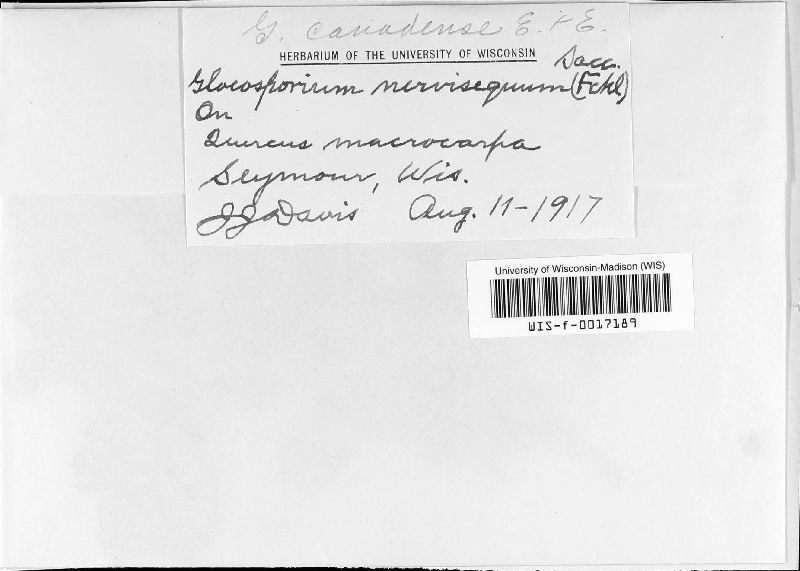 G. canadense E. & E.
HERBARIUM OF THE UNIVERSITY OF WISCONSIN
Gloeosporium nervisequum (Fckl) Sacc.
On
Quercus macrocarpa
Seymour, Wis.
JJ Davis Aug. 11-1917
University of Wisconsin-Madison (WIS)
WIS-f-0017189